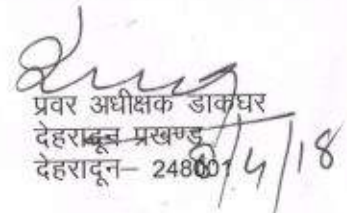 प्रवर अधीक्षक डाकघर
देहरादून प्रखण्ड
देहरादून– 248001
/4/18